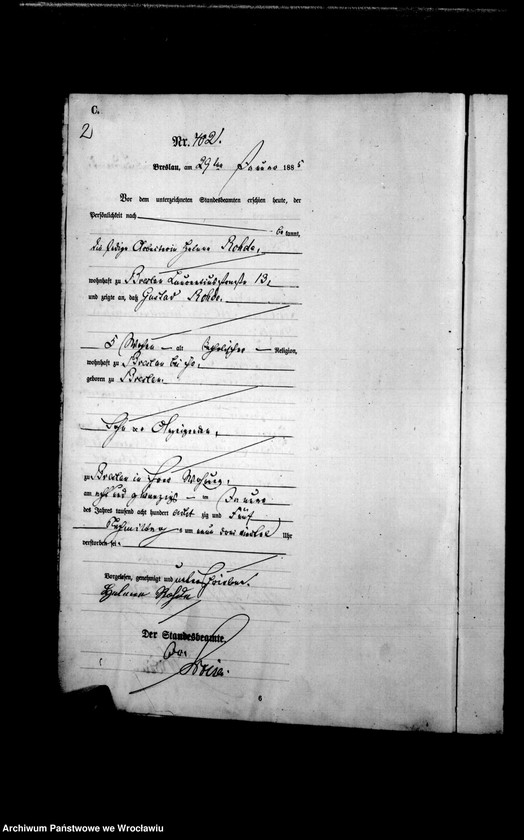 C.
2
Nr. 402.
Breslau, am 29ten Januar 1885
Vor dem unterzeichneten Standesbeamten erschien heute, der
Persönlichkeit nach
be kannt,
die ledige Arbeiterin Helene Rohde,
wohnhaft zu Breslau Laurentiusstraße 13,
und zeigte an, daß Gustav Rohde,
5 Wochen alt katholischer Religion,
wohnhaft zu Breslau bei ihr,
geboren zu Breslau,
Sohn der Anzeigenden,
zu Breslau in ihrer Wohnung,
am acht und zwanzigsten im Januar
des Jahres tausend acht hundert achtzig und fünf
Nachmittags um neun drei viertel Uhr
verstorben sei.
Vorgelesen, genehmigt und unterschrieben.
Helene Rohde
Der Standesbeamte.
6
Archiwum Państwowe we Wrocławiu